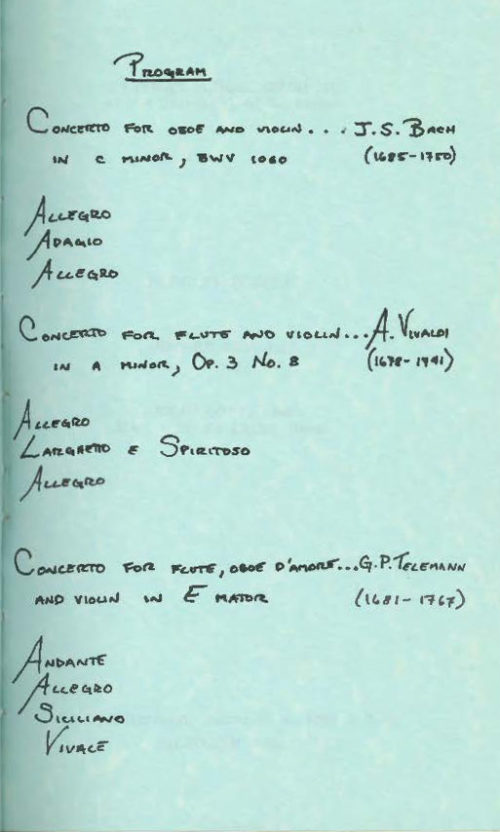 PROGRAM
CONCERTO FOR OBOE AND VIOLIN... J.S. BACH
IN C MINOR, BWV 1060 (1685-1750)
ALLEGRO
ADAGIO
ALLEGRO
CONCERTO FOR FLUTE AND VIOLIN... A. VIVALDI
IN A MINOR, OP. 3 NO. 8 (1678-1741)
ALLEGRO
LARGHETTO E SPIRITOSO
ALLEGRO
CONCERTO FOR FLUTE, OBOE D'AMORE... G.P. TELEMANN
AND VIOLIN IN E MAJOR (1681-1767)
ANDANTE
ALLEGRO
SICILIANO
VIVACE